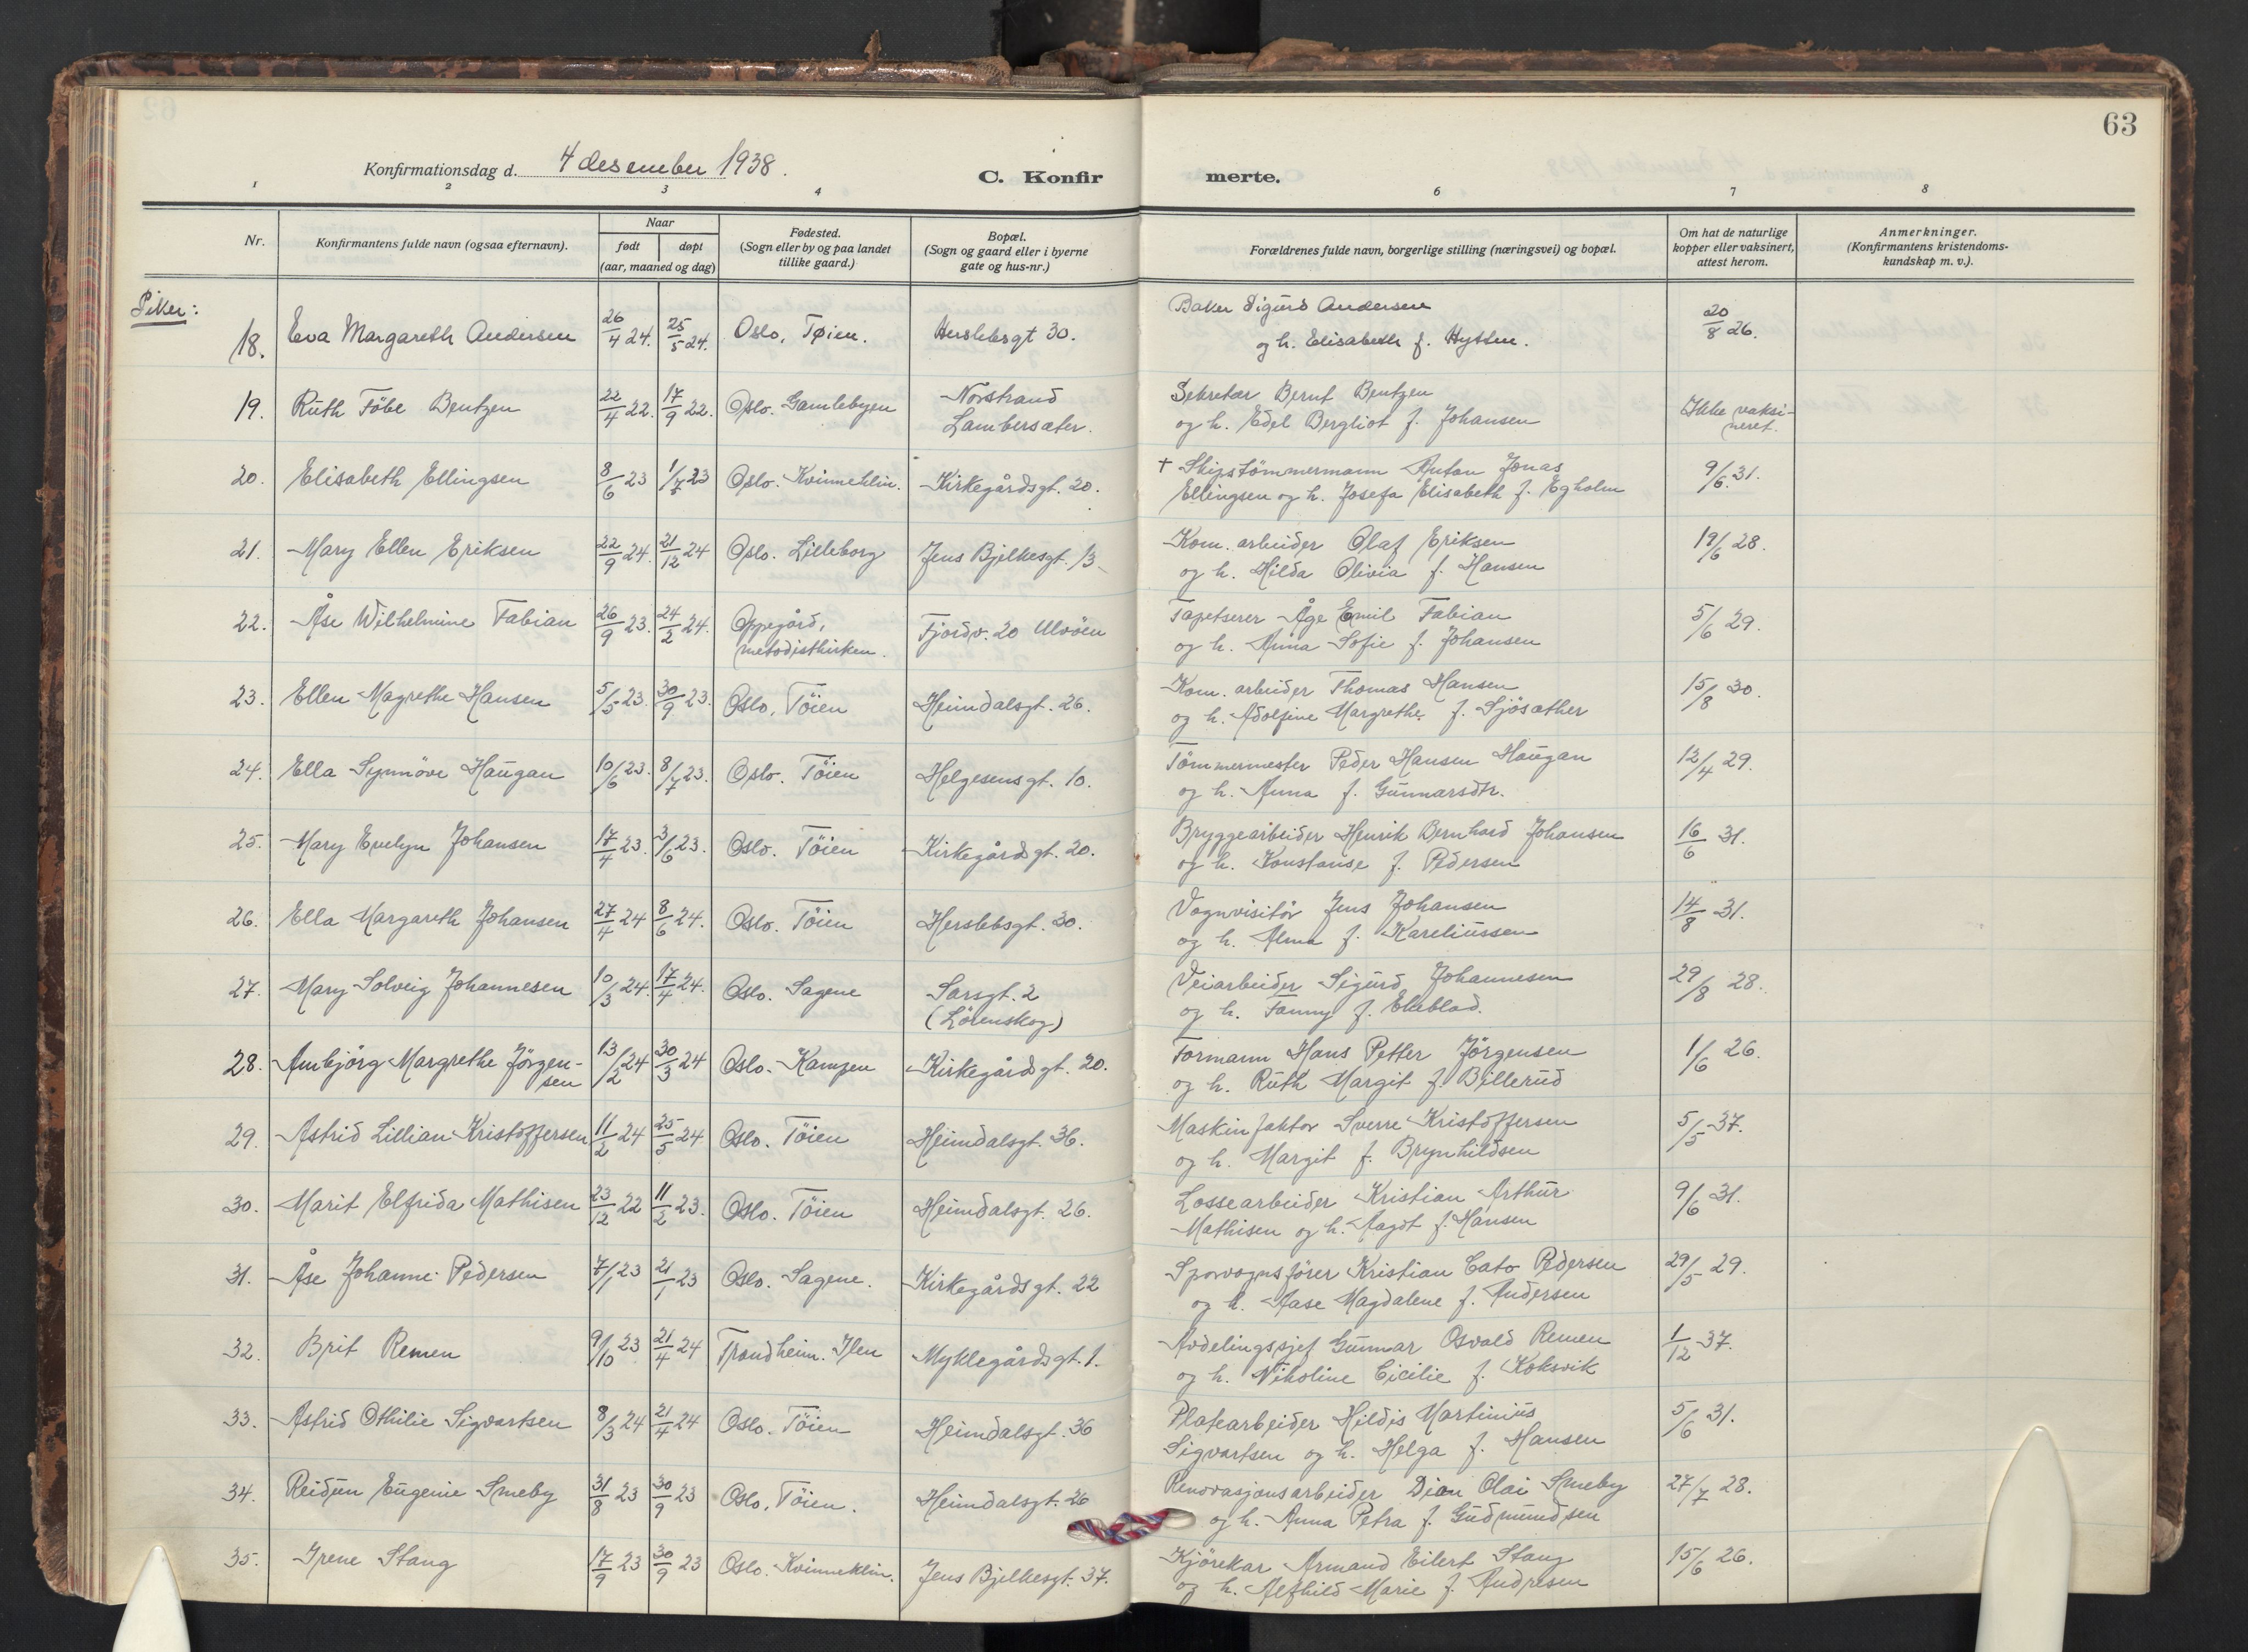 63
Konfirmationsdag d. 4 desember 1938.
C. Konfir merte.
1 2 3 4 6 7 8
Nr. Konfirmantens fulde navn (ogsaa efternavn). Naar født døpt (aar, maaned og dag) Fødested. (Sogn eller by og paa landet tillike gaard.) Bopæl. (Sogn og gaard eller i byerne gate og hus-nr.) Forældrenes fulde navn, borgerlige stilling (næringsvei) og bopæl. Om hat de naturlige kopper eller vaksinert, attest herom. Anmerkninger. (Konfirmantens kristendoms-kundskap m. v.).
Piker:
18. Eva Margareth Andersen 26/4 24. 25/5 24. Oslo, Tøien. Herslebsgt 30. Baker Sigurd Andersen
og h. Elisabeth f. Hytten. 20/8 26.
19. Ruth Föbe Bentzen 22/4 22. 17/9 22. Oslo. Gamlebyen Norstrand Sekretær Bernt Bentzen Ikke vaksi-
Lambersæter. og h. Edel Bergliot f. Johansen neret.
20. Elisabeth Ellingsen 8/6 23 1/7 23 Oslo. Kvinneklin. Kirkegårdsgt. 20. + Skipstömmermann Anton Jonas 9/6 31.
Ellingsen og h. Josefa Elisabeth f. Egholm
21. Mary Ellen Eriksen 22/9 24. 21/12 24 Oslo. Lilleborg Jens Bjelkesgt. 13. Kom. arbeider Olaf Eriksen 19/6 28.
og h. Hilda Olivia f. Hansen
22. Åse Wilhelmine Fabian 26/9 23. 24/2 24. Oppegård, Fjordv. 20 Ulvöen Tapetserer Åge Emil Fabian 5/6 29.
metodistkirken. og h. Anna Sofie f. Johansen
23. Ellen Magrethe Hansen 5/5 23. 30/9 23. Oslo, Töien Heimdalsgt. 26. Kom. arbeider Thomas Hansen 15/8 30.
og h. Adolfine Margrethe f. Sjösæther
24. Ella Synnöve Haugan 10/6 23. 8/7 23. Oslo. Töien Helgesensgt. 10. Tömmermester Peder Hansen Haugan 12/4 29.
og h. Anna f. Gunnarsdtr.
25. Mary Evelyn Johansen 17/4 23. 3/6 23. Oslo. Töien Kirkegårdsgt. 20. Bryggearbeider Henrik Bernhard Johansen 16/6 31.
og h. Konstanse f. Pedersen
26. Ella Margareth Johansen 27/4 24 8/6 24. Oslo. Töien Herslebsgt. 30. Vognvisitör Jens Johansen 14/8 31.
og h. Alma f. Kareliussen
27. Mary Solveig Johannesen 10/3 24. 17/4 24. Oslo. Sagene Sarsgt. 2 Veiarbeider Sigurd Johannesen 29/8 28.
(Lörenskog) og h. Fanny f. Ekeblad.
28. Ambjörg Margrethe Jörgen- 13/2 24 30/3 24 Oslo. Kampen Kirkegårdsgt. 20. Formann Hans Petter Jörgensen 1/6 26.
sen og h. Ruth Margit f. Billerud
29. Astrid Lillian Kristoffersen 11/2 24 25/5 24 Oslo. Töien Heimdalsgt. 36. Maskinfaktor Sverre Kristoffersen 5/5 37.
og h. Margit f. Brynhildsen
30. Marit Elfrida Mathisen 23/12 22 11/2 23. Oslo. Töien Heimdalsgt. 26. Lossearbeider Kristian Arthur 9/6 31.
Mathisen og h. Aagot f. Hansen
31. Åse Johanne Pedersen 7/1 23 21/1 23 Oslo. Sagene. Kirkegårdsgt. 22 Sporvognsförer Kristian Cato Pedersen 29/5 29.
og h. Aase Magdalene f. Andersen
32. Brit Remen 9/10 23 21/4 24 Trondheim. Ilen Myklegårdsgt. 1. Avdelingssjef Gunnar Osvald Remen 1/12 37.
og h. Nikoline Cicilie f. Koksvik
33. Astrid Othilie Sigvartsen 8/3 24 21/4 24 Oslo. Töien Heimdalsgt. 36 Platearbeider Hildis Martinius 5/6 31.
Sigvartsen og h. Helga f. Hansen
34. Reidun Eugenie Smeby 31/8 23 30/9 23 Oslo, Töien. Heimdalsgt. 26 Renovasjonsarbeider Dian Olai Smeby 27/7 28.
og h. Anna Petra f. Gudmundsen
35. Irene Stang 17/9 23 30/9 23 Oslo. Kvinneklin. Jens Bjelkesgt. 37. Kjörekar Armand Eilert Stang 15/6 26.
og h. Alfhild Marie f. Andresen